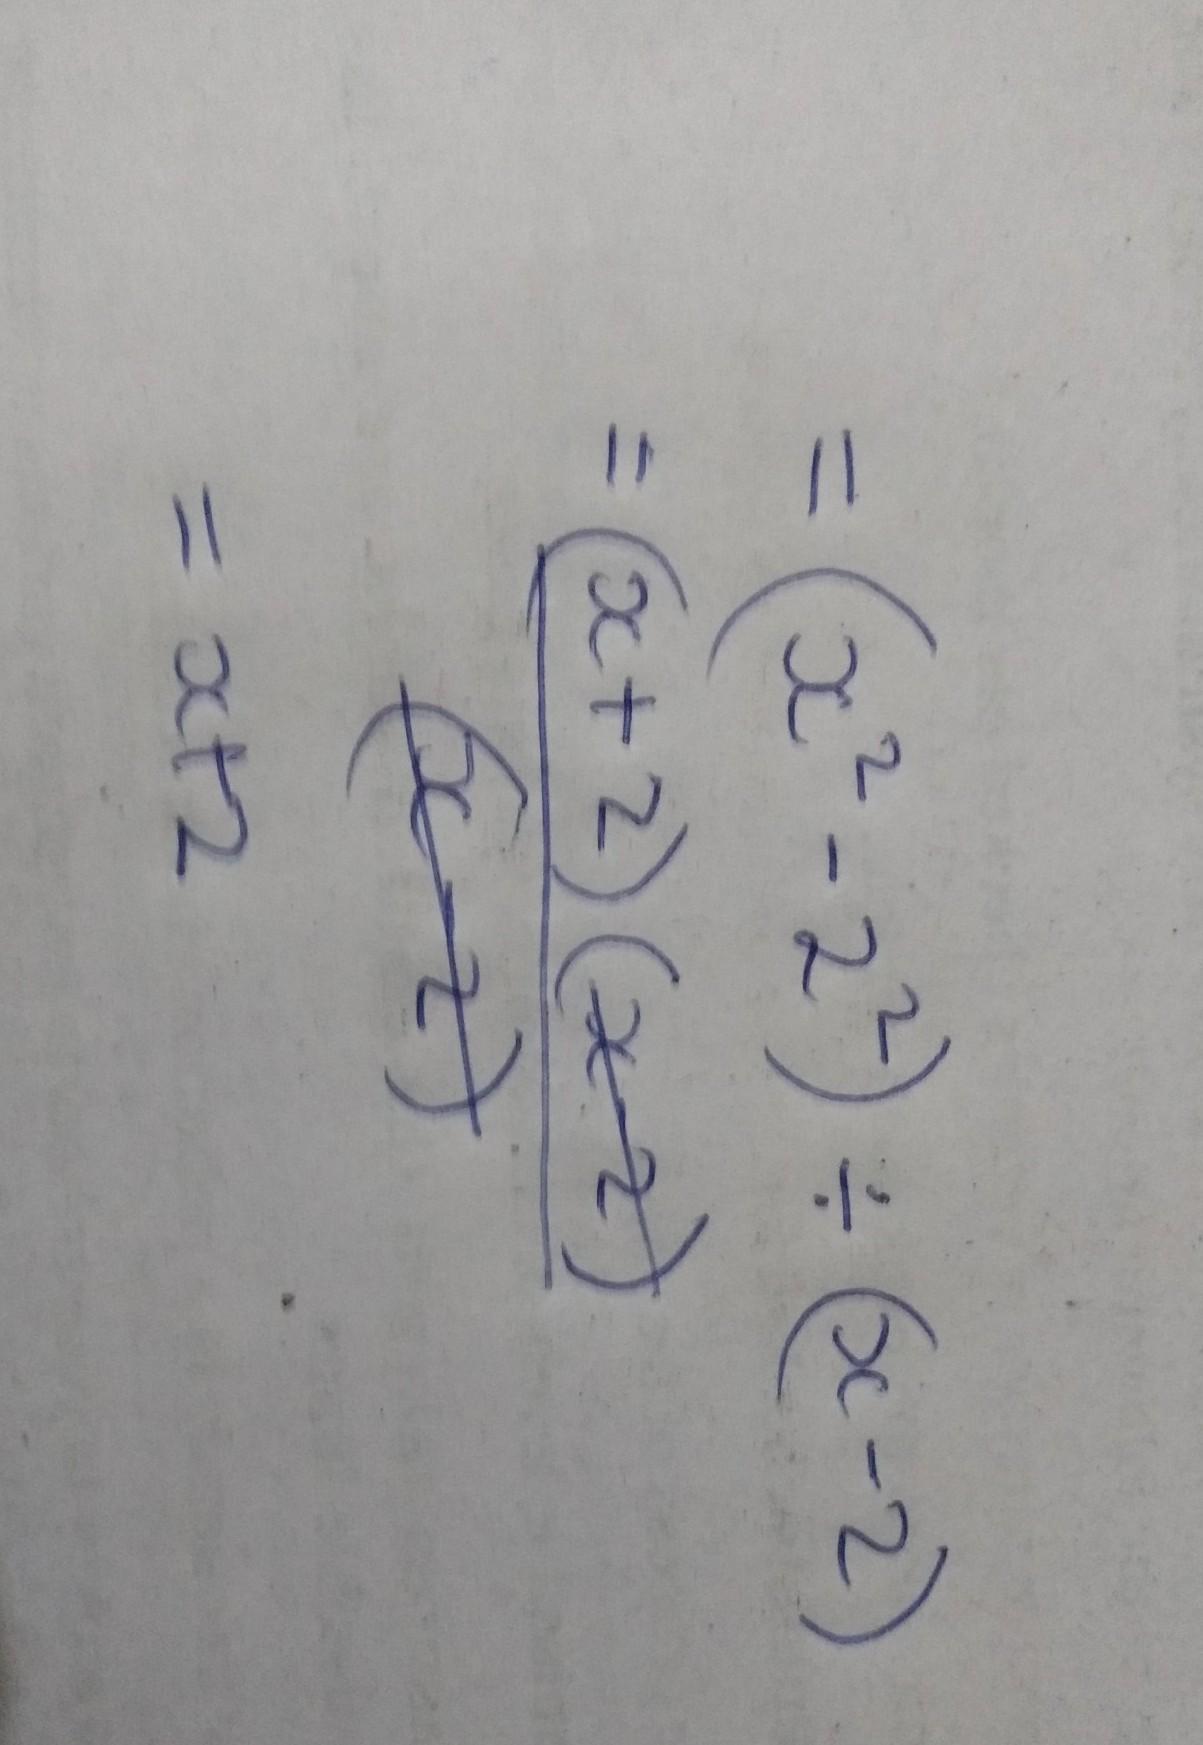 = (x² - 2²) ÷ (x - 2)
= (x + 2) (x - 2)
(x - 2)
= x + 2